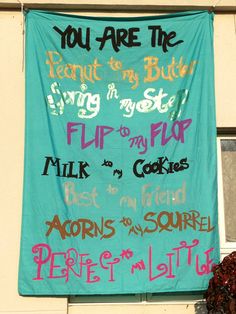 You Are the
Peanut to my Butter
Spring in my Step
Flip to my Flop
Milk to my Cookies
Best to my Friend
Acorns to my Squirrel
Perfect to my Little